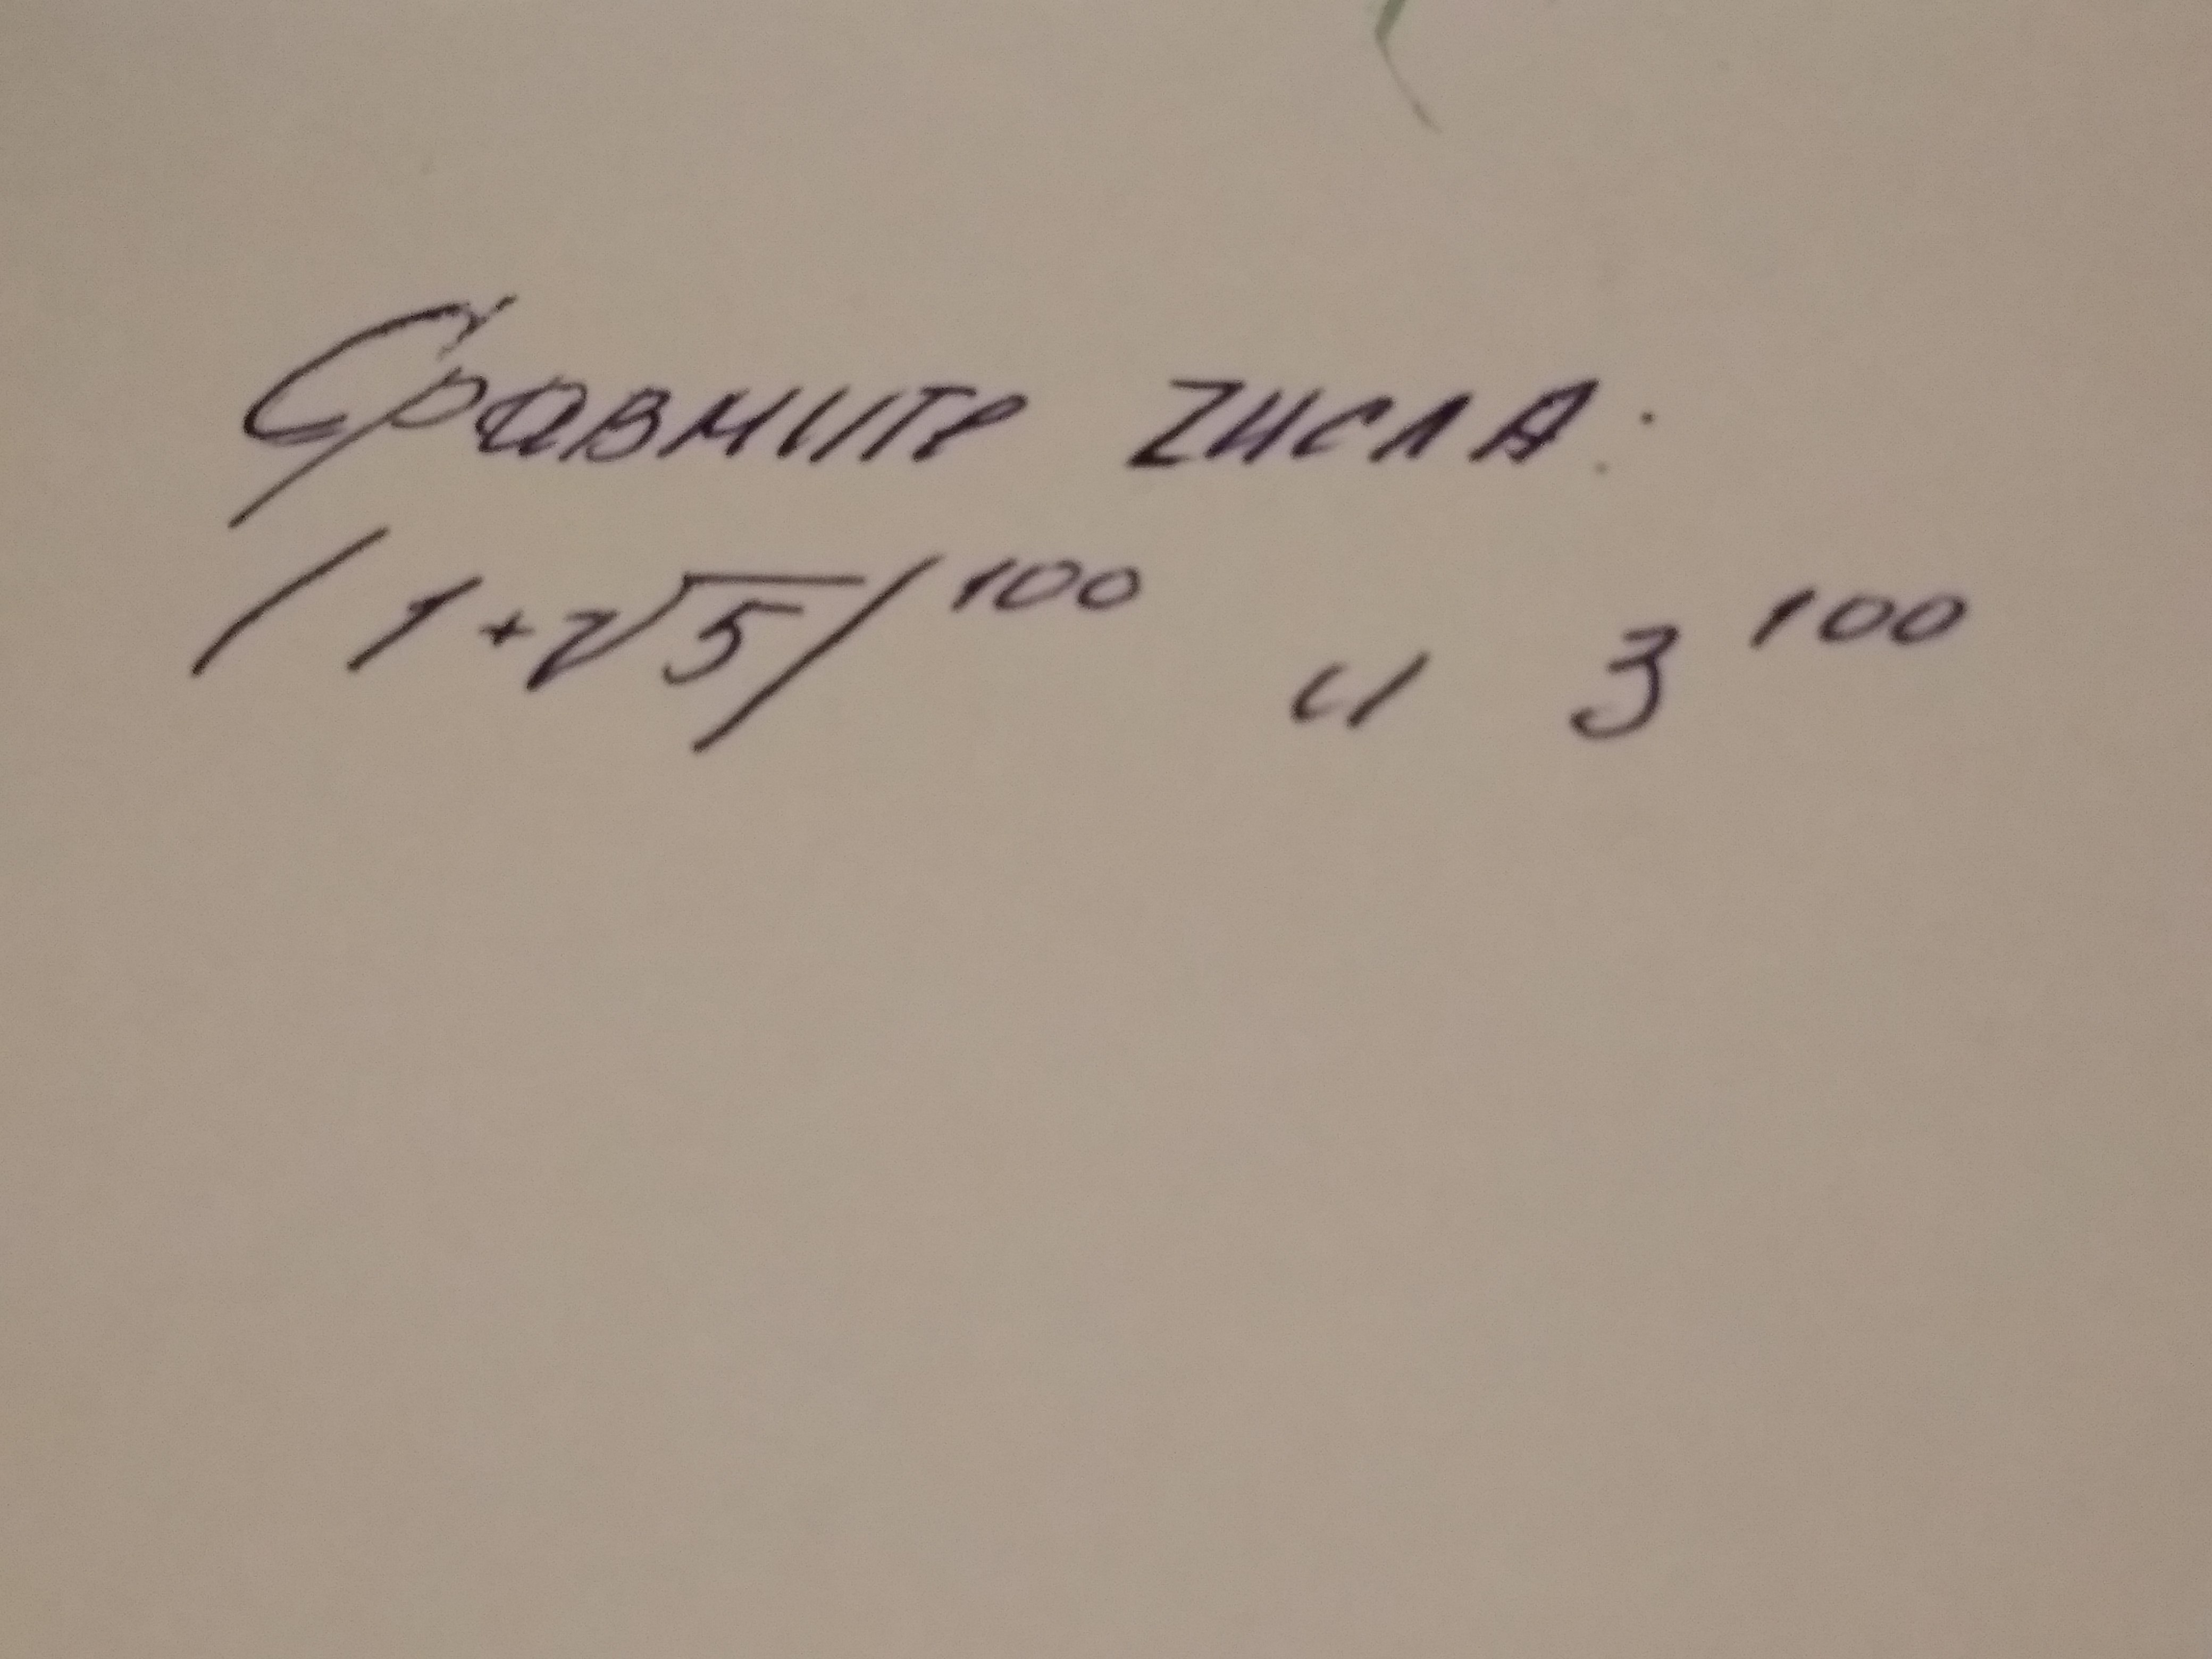 Сравнить числа:
(1+√5)^100 и 3^100